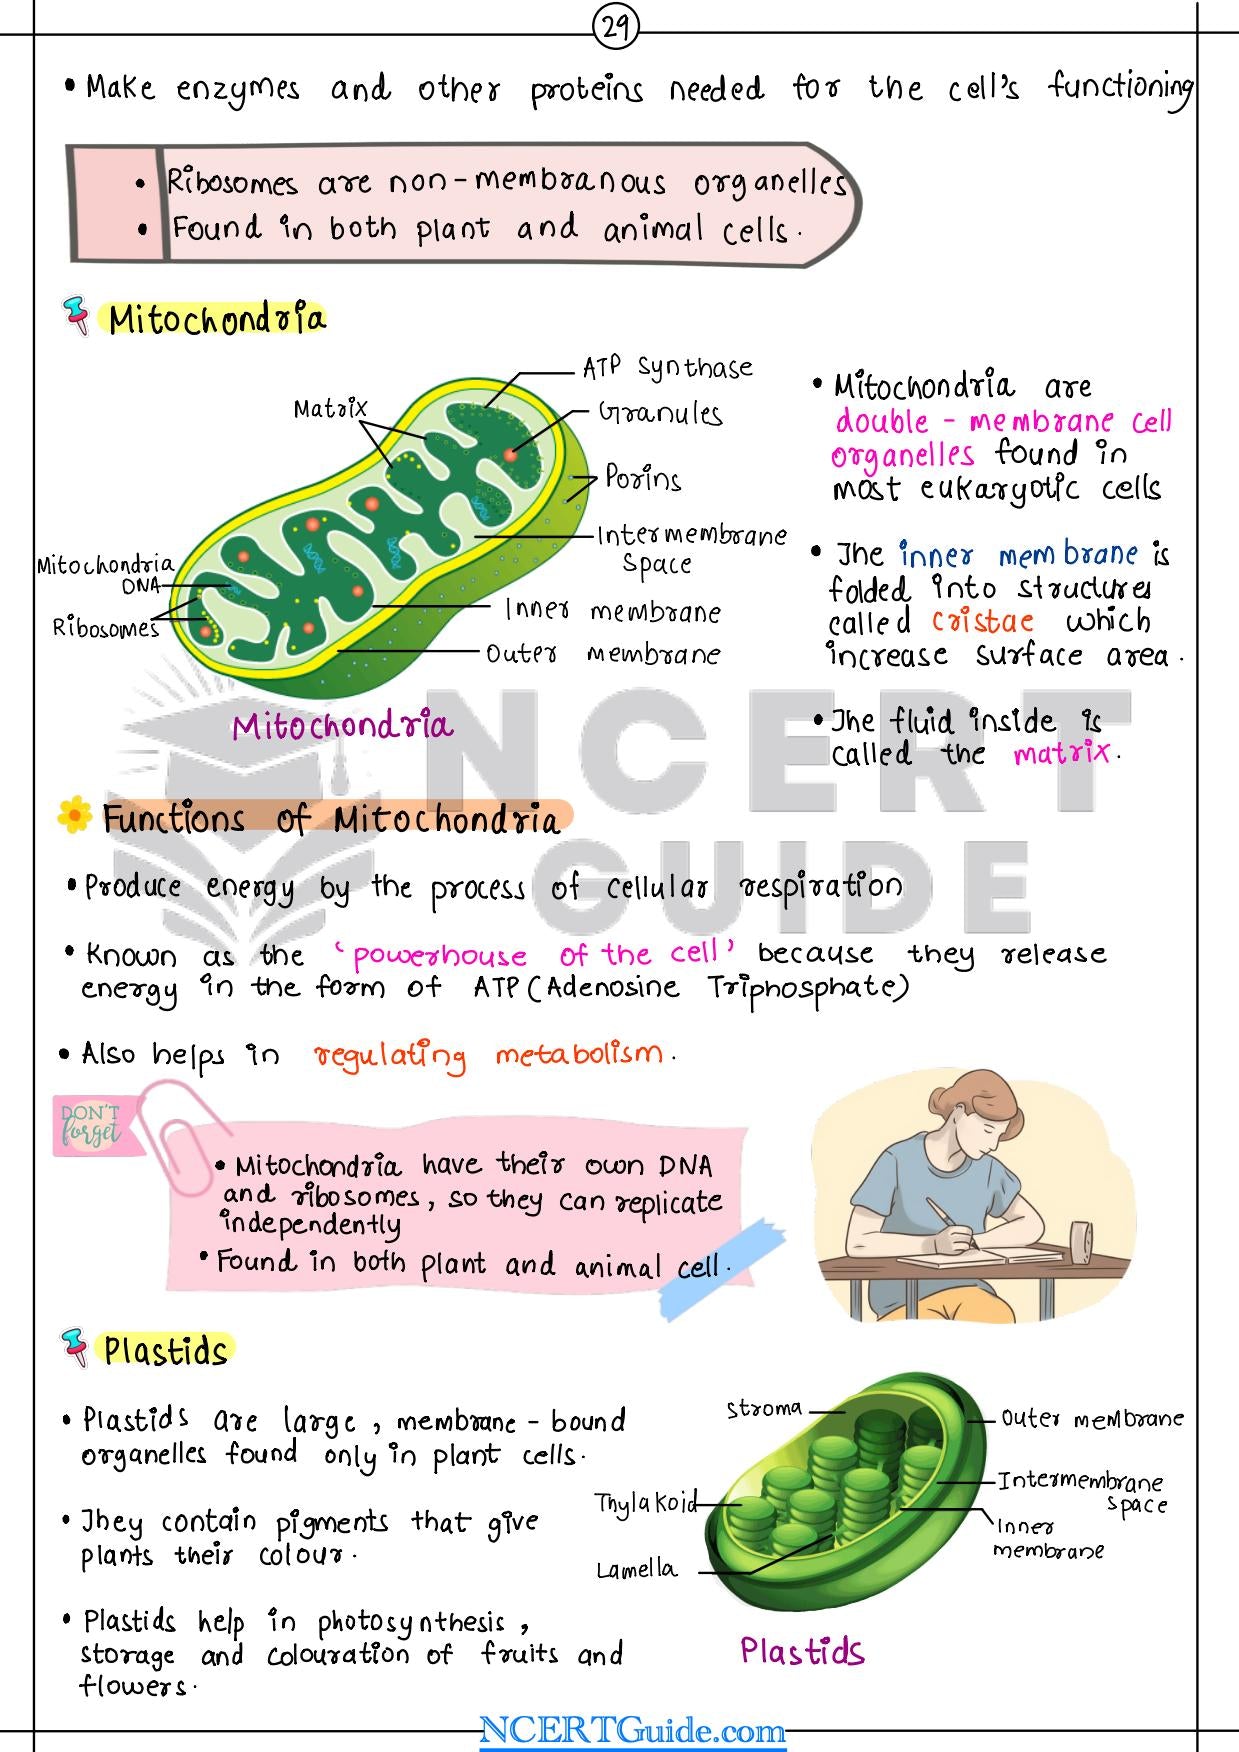 29
• Make enzymes and other proteins needed for the cell's functioning
• Ribosomes are non-membranous organelles
• Found in both plant and animal cells.
Mitochondria
ATP Synthase
Matrix
Granules
Porins
Intermembrane
Space
Mitochondria
DNA
Ribosomes
Inner membrane
Outer membrane
Mitochondria
• Mitochondria are
double - membrane cell
organelles found in
most eukaryotic cells
• The inner membrane is
folded into structures
called cristae which
increase surface area.
• The fluid inside is
called the matrix.
NCERT
GUIDE
Functions of Mitochondria
• Produce energy by the process of cellular respiration
• Known as the 'powerhouse of the cell' because they release
energy in the form of ATP (Adenosine Triphosphate)
• Also helps in regulating metabolism.
DON'T
forget
• Mitochondria have their own DNA
and ribosomes, so they can replicate
independently
• Found in both plant and animal cell.
Plastids
• Plastids are large, membrane - bound
organelles found only in plant cells.
• They contain pigments that give
plants their colour.
• Plastids help in photosynthesis,
storage and colouration of fruits and
flowers.
Stroma
Outer membrane
Intermembrane
space
Thylakoid
Inner
membrane
Lamella
Plastids
NCERTGuide.com